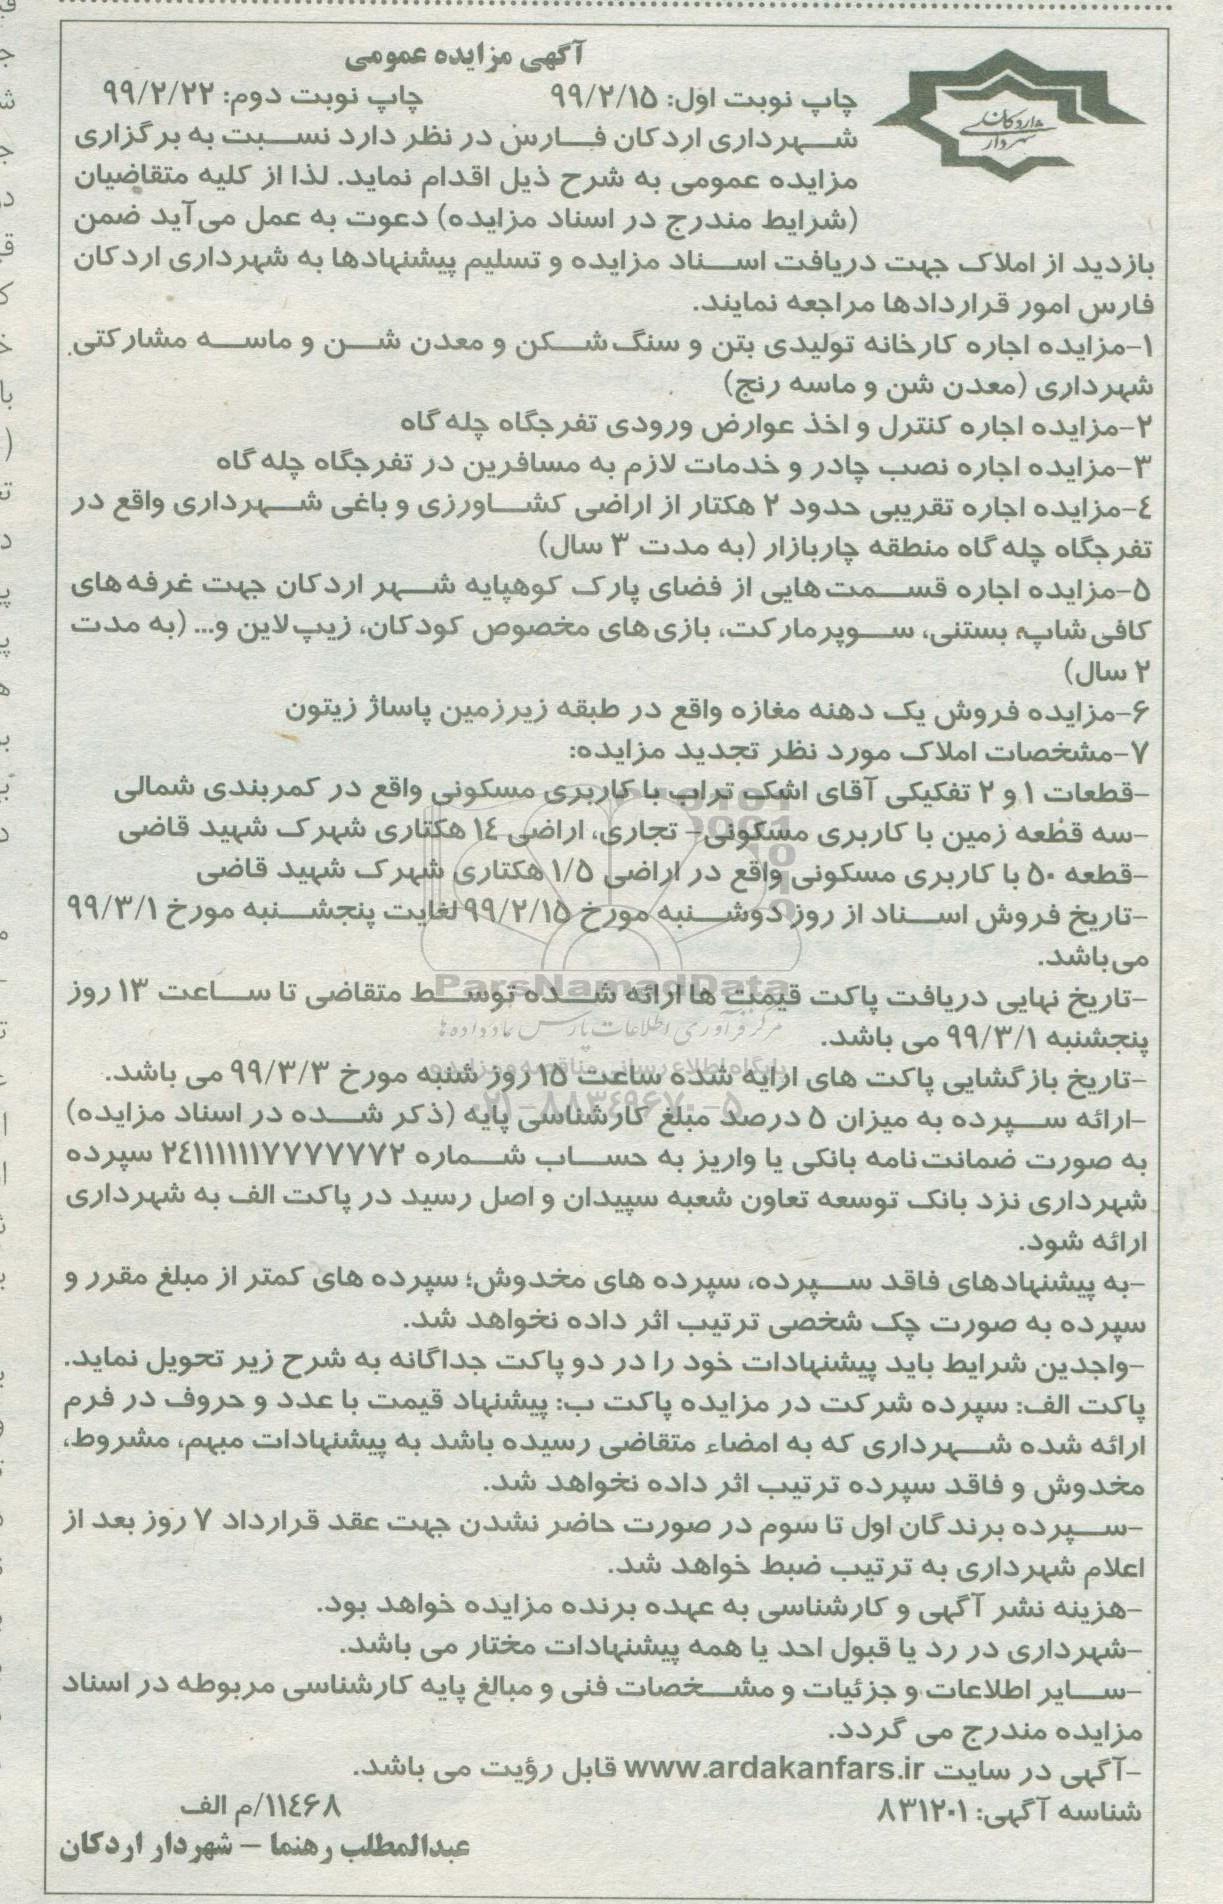 آگهی مزایده عمومی
چاپ نوبت اول: ۹۹/۲/۱۵ چاپ نوبت دوم: ۹۹/۲/۲۲
شهرداری اردکان فارس در نظر دارد نسبت به برگزاری
مزایده عمومی به شرح ذیل اقدام نماید. لذا از کلیه متقاضیان
(شرایط مندرج در اسناد مزایده) دعوت به عمل می‌آید ضمن
بازدید از املاک جهت دریافت اسناد مزایده و تسلیم پیشنهادها به شهرداری اردکان
فارس امور قراردادها مراجعه نمایند.
۱-مزایده اجاره کارخانه تولیدی بتن و سنگ‌شکن و معدن شن و ماسه مشارکتی
شهرداری (معدن شن و ماسه رنج)
۲-مزایده اجاره کنترل و اخذ عوارض ورودی تفرجگاه چله گاه
۳-مزایده اجاره نصب چادر و خدمات لازم به مسافرین در تفرجگاه چله گاه
۴-مزایده اجاره تقریبی حدود ۲ هکتار از اراضی کشاورزی و باغی شهرداری واقع در
تفرجگاه چله گاه منطقه چاربازار (به مدت ۳ سال)
۵-مزایده اجاره قسمت‌هایی از فضای پارک کوهپایه شهر اردکان جهت غرفه‌های
کافی‌شاپ، بستنی، سوپرمارکت، بازی‌های مخصوص کودکان، زیپ‌لاین و... (به مدت
۲ سال)
۶-مزایده فروش یک دهنه مغازه واقع در طبقه زیرزمین پاساژ زیتون
۷-مشخصات املاک مورد نظر تجدید مزایده:
-قطعات ۱ و ۲ تفکیکی آقای اشک تراب با کاربری مسکونی واقع در کمربندی شمالی
-سه قطعه زمین با کاربری مسکونی- تجاری، اراضی ۱۴ هکتاری شهرک شهید قاضی
-قطعه ۵۰ با کاربری مسکونی واقع در اراضی ۱/۵ هکتاری شهرک شهید قاضی
-تاریخ فروش اسناد از روز دوشنبه مورخ ۹۹/۲/۱۵ لغایت پنجشنبه مورخ ۹۹/۳/۱
می‌باشد.
-تاریخ نهایی دریافت پاکت قیمت ها ارائه شده توسط متقاضی تا ساعت ۱۳ روز
پنجشنبه ۹۹/۳/۱ می باشد.
-تاریخ بازگشایی پاکت های ارایه شده ساعت ۱۵ روز شنبه مورخ ۹۹/۳/۳ می باشد.
-ارائه سپرده به میزان ۵ درصد مبلغ کارشناسی پایه (ذکر شده در اسناد مزایده)
به صورت ضمانت‌نامه بانکی یا واریز به حساب شماره ۲۴۱۱۱۱۱۱۷۷۷۷۷۷۲ سپرده
شهرداری نزد بانک توسعه تعاون شعبه سپیدان و اصل رسید در پاکت الف به شهرداری
ارائه شود.
-به پیشنهادهای فاقد سپرده، سپرده های مخدوش؛ سپرده های کمتر از مبلغ مقرر و
سپرده به صورت چک شخصی ترتیب اثر داده نخواهد شد.
-واجدین شرایط باید پیشنهادات خود را در دو پاکت جداگانه به شرح زیر تحویل نماید.
پاکت الف: سپرده شرکت در مزایده پاکت ب: پیشنهاد قیمت با عدد و حروف در فرم
ارائه شده شهرداری که به امضاء متقاضی رسیده باشد به پیشنهادات مبهم، مشروط،
مخدوش و فاقد سپرده ترتیب اثر داده نخواهد شد.
-سپرده برندگان اول تا سوم در صورت حاضر نشدن جهت عقد قرارداد ۷ روز بعد از
اعلام شهرداری به ترتیب ضبط خواهد شد.
-هزینه نشر آگهی و کارشناسی به عهده برنده مزایده خواهد بود.
-شهرداری در رد یا قبول احد یا همه پیشنهادات مختار می باشد.
-سایر اطلاعات و جزئیات و مشخصات فنی و مبالغ پایه کارشناسی مربوطه در اسناد
مزایده مندرج می گردد.
-آگهی در سایت www.ardakanfars.ir قابل رؤیت می باشد.
شناسه آگهی: ۸۳۱۲۰۱ ۱۱۴۶۸/م الف
عبدالمطلب رهنما – شهردار اردکان
ParsNamadData
مرکز فرآوری اطلاعات پارس نماد داده‌ها
پایگاه اطلاع رسانی مناقصه و مزایده
۰۲۱-۸۸۳۴۹۶۷۰-۵